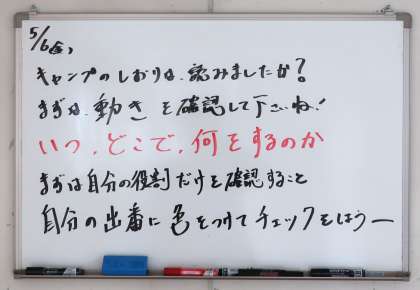 5/6(金)
キャンプのしおりは、読みましたか?
まずは、動きを確認して下さいね!
いつ、どこで、何をするのか
まずは自分の役割だけを確認すること
自分の出番に色をつけてチェックをしよう